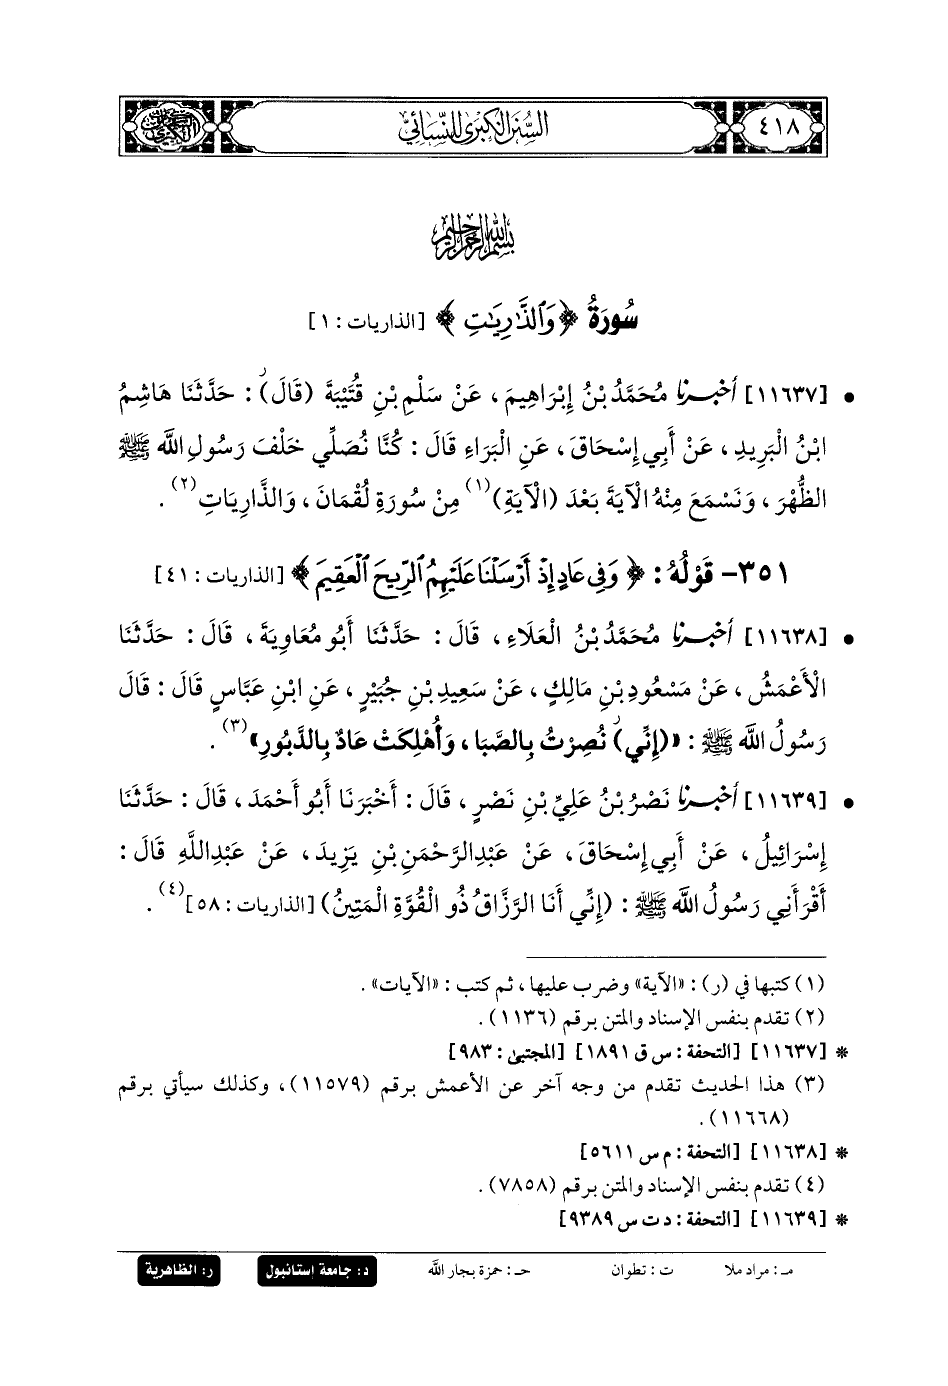 ٤١٨
السنن الكبرى للنسائي
السنن الكبرى
بسم الله الرحمن الرحيم
سُورَةُ ﴿وَٱلذَّٰرِيَٰتِ﴾ [الذاريات : ١]
• [١١٦٣٧] أخبرنا مُحَمَّدُ بْنُ إِبْرَاهِيمَ ، عَنْ سَلْمِ بْنِ قُتَيْبَةَ (قَالَ)ر : حَدَّثَنَا هَاشِمُ
ابْنُ الْبَرِيدِ ، عَنْ أَبِي إِسْحَاقَ ، عَنِ الْبَرَاءِ قَالَ : كُنَّا نُصَلِّي خَلْفَ رَسُولِ اللَّه ﷺ
الظُّهْرَ ، وَنَسْمَعَ مِنْهُ الْآيَةَ بَعْدَ (الْآيَةِ)(١) مِنْ سُورَةِ لُقْمَانَ ، وَالذَّارِيَاتِ(٢) .
٣٥١- قَوْلُهُ : ﴿وَفِى عَادٍ إِذْ أَرْسَلْنَا عَلَيْهِمُ ٱلرِّيحَ ٱلْعَقِيمَ﴾ [الذاريات : ٤١]
• [١١٦٣٨] أخبرنا مُحَمَّدُ بْنُ الْعَلَاءِ ، قَالَ : حَدَّثَنَا أَبُو مُعَاوِيَةَ ، قَالَ : حَدَّثَنَا
الْأَعْمَشُ ، عَنْ مَسْعُودِ بْنِ مَالِكٍ ، عَنْ سَعِيدِ بْنِ جُبَيْرٍ ، عَنِ ابْنِ عَبَّاسٍ قَالَ : قَالَ
رَسُولُ اللَّه ﷺ : «(إِنِّي)ر نُصِرْتُ بِالصَّبَا ، وَأُهْلِكَتْ عَادٌ بِالدَّبُورِ»(٣) .
• [١١٦٣٩] أخبرنا نَصْرُ بْنُ عَلِيِّ بْنِ نَصْرٍ ، قَالَ : أَخْبَرَنَا أَبُو أَحْمَدَ ، قَالَ : حَدَّثَنَا
إِسْرَائِيلُ ، عَنْ أَبِي إِسْحَاقَ ، عَنْ عَبْدِ الرَّحْمَنِ بْنِ يَزِيدَ ، عَنْ عَبْدِ اللَّهِ قَالَ :
أَقْرَأَنِي رَسُولُ اللَّه ﷺ : (إِنِّي أَنَا الرَّزَّاقُ ذُو الْقُوَّةِ الْمَتِينُ) [الذاريات : ٥٨](٤) .
(١) كتبها في (ر) : «الآية» وضرب عليها ، ثم كتب : «الآيات» .
(٢) تقدم بنفس الإسناد والمتن برقم (١١٣٦) .
* [١١٦٣٧] [التحفة : س ق ١٨٩١] [المجتبى : ٩٨٣]
(٣) هذا الحديث تقدم من وجه آخر عن الأعمش برقم (١١٥٧٩) ، وكذلك سيأتي برقم
(١١٦٦٨) .
* [١١٦٣٨] [التحفة : م س ٥٦١١]
(٤) تقدم بنفس الإسناد والمتن برقم (٧٨٥٨) .
* [١١٦٣٩] [التحفة : د ت س ٩٣٨٩]
مـ : مراد ملا ت : تطوان حـ : حمزة بجار الله د: جامعة إستانبول ر: الظاهرية